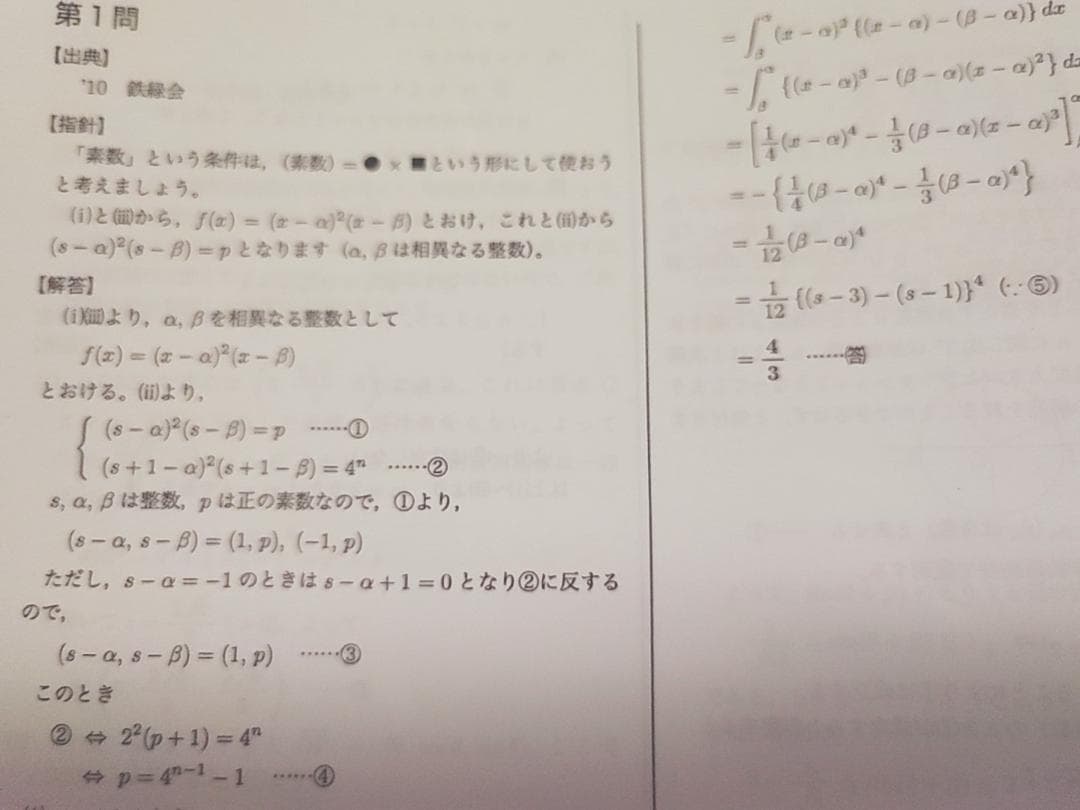 第1問
【出典】
'10 鉄緑会
【指針】
「素数」という条件は，(素数) = ● × ■ という形にして使おう
と考えましょう。
(i)と(iii)から，f(x) = (x − α)²(x − β) とおけ，これと(ii)から
(s − α)²(s − β) = p となります (α, β は相異なる整数)。
【解答】
(i)(iii)より，α, β を相異なる整数として
f(x) = (x − α)²(x − β)
とおける。(ii)より，
(s − α)²(s − β) = p ……①
(s + 1 − α)²(s + 1 − β) = 4ⁿ ……②
s, α, β は整数，p は正の素数なので，①より，
(s − α, s − β) = (1, p), (−1, p)
ただし，s − α = −1 のときは s − α + 1 = 0 となり②に反する
ので，
(s − α, s − β) = (1, p) ……③
このとき
② ⇔ 2²(p + 1) = 4ⁿ
⇔ p = 4ⁿ⁻¹ − 1 ……④
= ∫_β^α (x − α)² {(x − α) − (β − α)} dx
= ∫_β^α {(x − α)³ − (β − α)(x − α)²} dx
= [1/4 (x − α)⁴ − 1/3 (β − α)(x − α)³]
= − {1/4 (β − α)⁴ − 1/3 (β − α)⁴}
= 1/12 (β − α)⁴
= 1/12 {(s − 3) − (s − 1)}⁴ (∵ ⑤)
= 4/3 ……(答)